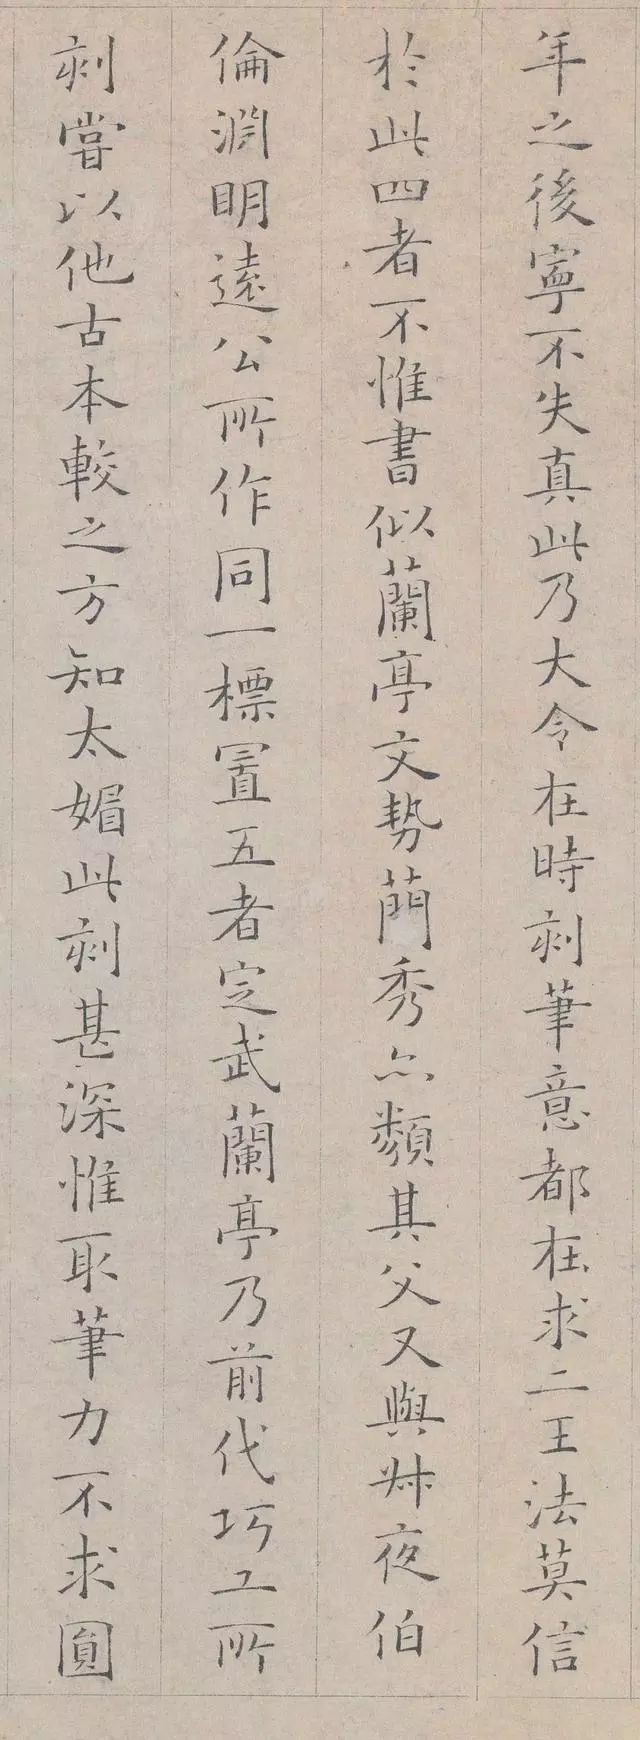 年之後寧不失真此乃大令在時刻筆意都在求二王法莫信
於此四者不惟書似蘭亭文勢蕑秀亦類其父又與叔夜伯
倫淵明遠公所作同一標置五者定武蘭亭乃前代巧工所
刻嘗以他古本較之方知太媚此刻甚深惟取筆力不求圓